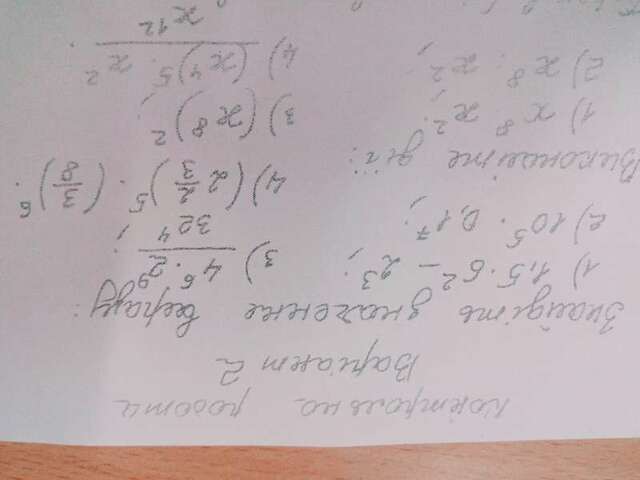 Контрольна робота
Варіант 2
Знайдіть значення виразу:
1) 1,5 · 6² − 2³; 3) 4⁶ · 2⁹ / 32⁴ ;
2) 10⁵ · 0,1⁷; 4) (2 2/3)⁵ · (3/8)⁶.
Виконайте дії:
1) x⁸ · x²; 3) (x⁸)²;
2) x⁸ : x²; 4) (x⁴)⁵ · x² / x¹² .